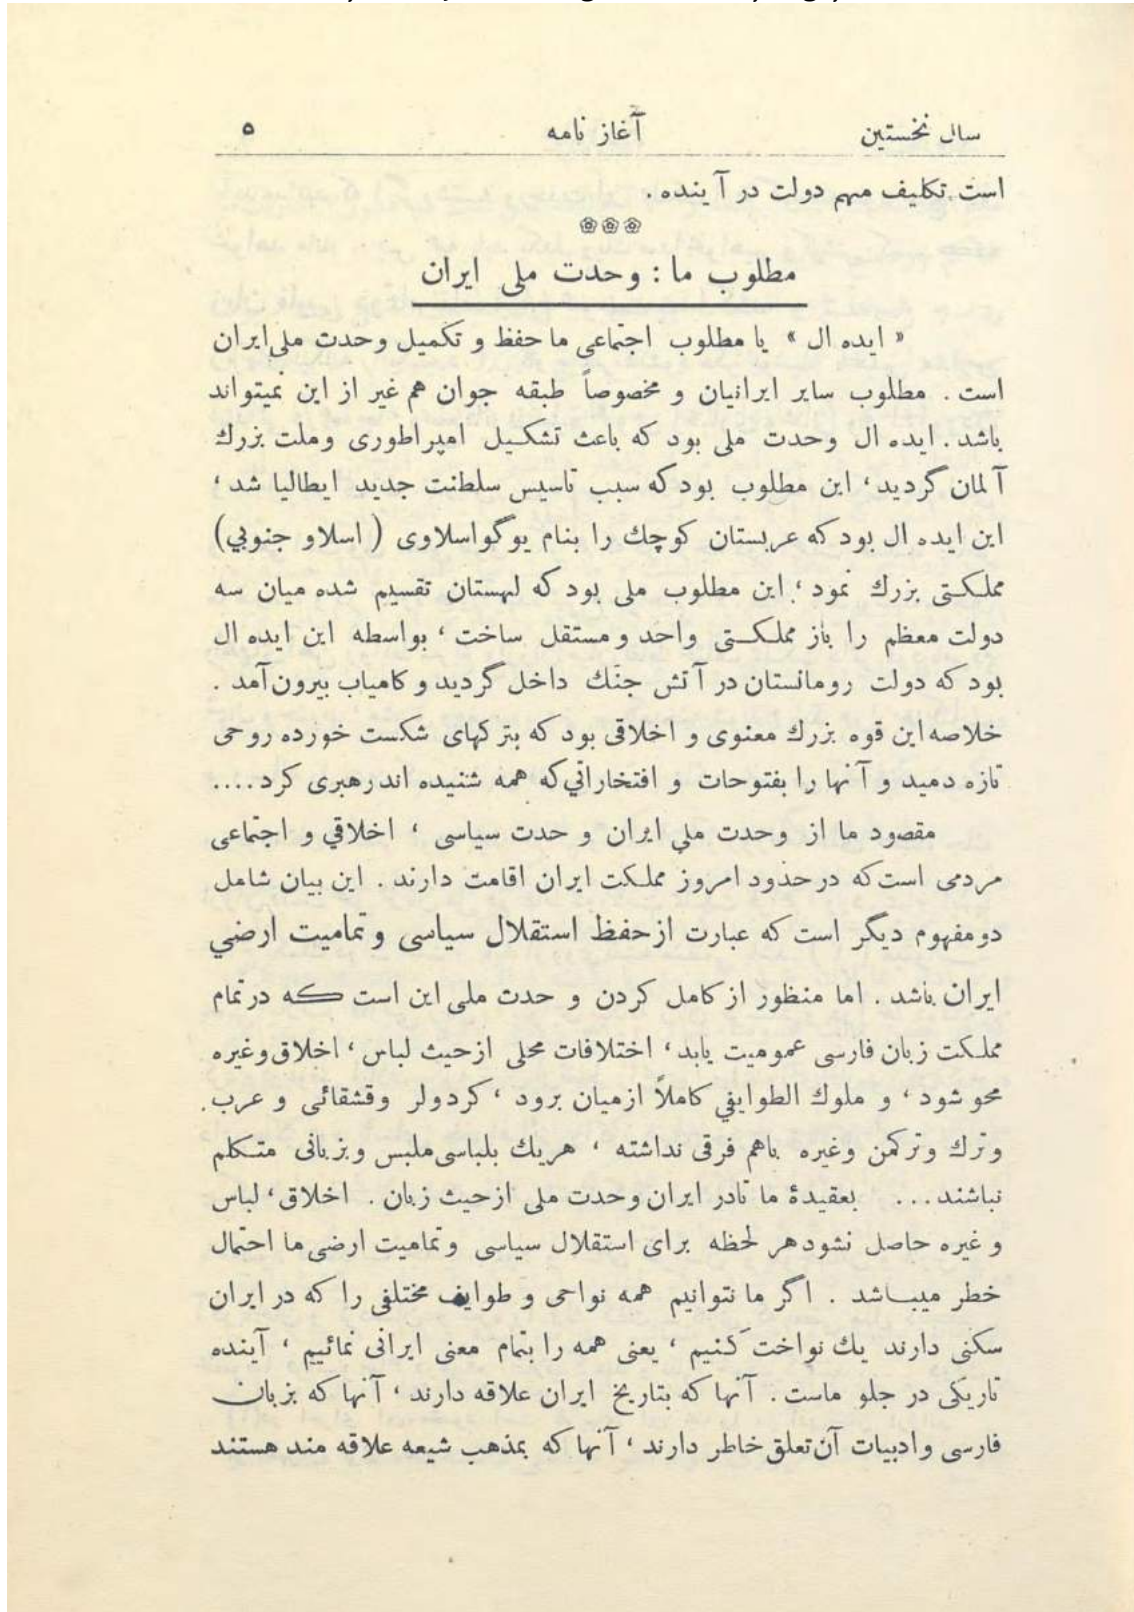 سال نخستین آغاز نامه ۵
است تکلیف مهم دولت در آینده .
مطلوب ما : وحدت ملی ایران
« ایده ال » یا مطلوب اجتماعی ما حفظ و تکمیل وحدت ملی ایران
است . مطلوب سایر ایرانیان و مخصوصاً طبقه جوان هم غیر از این نمیتواند
باشد . ایده ال وحدت ملی بود که باعث تشکیل امپراطوری وملت بزرك
آلمان گردید ، این مطلوب بود که سبب تاسیس سلطنت جدید ایطالیا شد ،
این ایده ال بود که عربستان کوچك را بنام یوگواسلاوی ( اسلاو جنوبي)
مملکتی بزرك نمود ، این مطلوب ملی بود که لهستان تقسیم شده میان سه
دولت معظم را باز مملکتی واحد و مستقل ساخت ، بواسطه این ایده ال
بود که دولت رومانستان در آتش جنك داخل گردید و کامیاب بیرون آمد .
خلاصه این قوه بزرك معنوی و اخلاقی بود که بترکهای شکست خورده روحی
تازه دمید و آنها را بفتوحات و افتخاراتي که همه شنیده اند رهبری کرد ....
مقصود ما از وحدت ملي ایران و حدت سیاسی ، اخلاقي و اجتماعی
مردمی است که در حدود امروز مملکت ایران اقامت دارند . این بیان شامل
دو مفهوم دیگر است که عبارت از حفظ استقلال سیاسی و تمامیت ارضي
ایران باشد . اما منظور از کامل کردن و حدت ملی این است که در تمام
مملکت زبان فارسی عمومیت یابد ، اختلافات محلی از حیث لباس ، اخلاق وغیره
محو شود ، و ملوك الطوایفي کاملاً از میان برود ، کرد ولر وقشقائی و عرب
و ترك و ترکمن وغیره باهم فرقی نداشته ، هریك بلباسی ملبس و بزبانی متکلم
نباشند ... بعقیدهٔ ما تا در ایران وحدت ملی از حیث زبان . اخلاق ، لباس
و غیره حاصل نشود هر لحظه برای استقلال سیاسی و تمامیت ارضی ما احتمال
خطر میباشد . اگر ما نتوانیم همه نواحی و طوایف مختلفی را که در ایران
سکنی دارند یك نواخت کنیم ، یعنی همه را بتمام معنی ایرانی نمائیم ، آینده
تاریکی در جلو ماست . آنها که بتاریخ ایران علاقه دارند ، آنها که بزبان
فارسی و ادبیات آن تعلق خاطر دارند ، آنها که بمذهب شیعه علاقه مند هستند